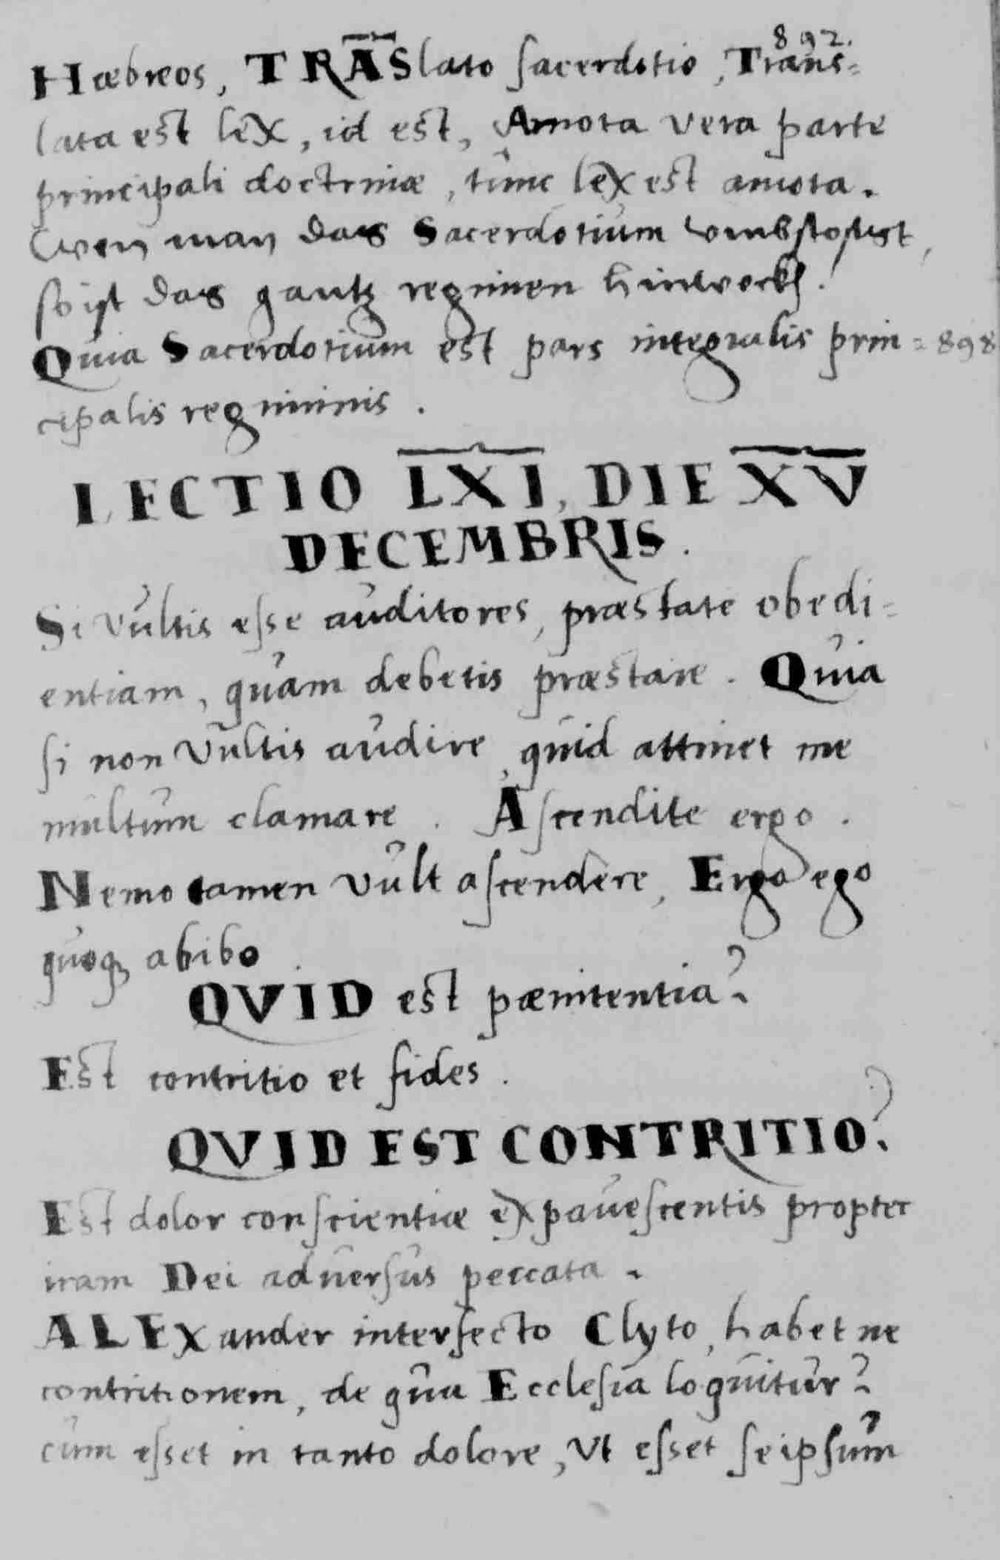 892.
Hæbreos, TRĀSlato sacerdotio, Trans=
lata est lex, id est, Amota vera parte
principali doctrinæ, tunc lex est amota.
Wen man das Sacerdotium vmbstosset,
so ist das gantz regimen hinweckh.
Quia Sacerdotium est pars integralis prin= 898
cipalis regiminis.
LECTIO LXI, DIE XV
DECEMBRIS.
Si vultis esse auditores, præstate obedi=
entiam, quam debetis præstare. Quia
si non vultis audire, quid attinet me
multum clamare. Ascendite ergo.
Nemo tamen vult ascendere, Ergo ego
quoq3 abibo
QVID est pænitentia?
Est contritio et fides.
QVID EST CONTRITIO?
Est dolor conscientiæ expauescentis propter
iram Dei aduersus peccata.
ALEXander interfecto Clyto, habet ne
contritionem, de qua Ecclesia loquitur?
cum esset in tanto dolore, Vt esset seipsum